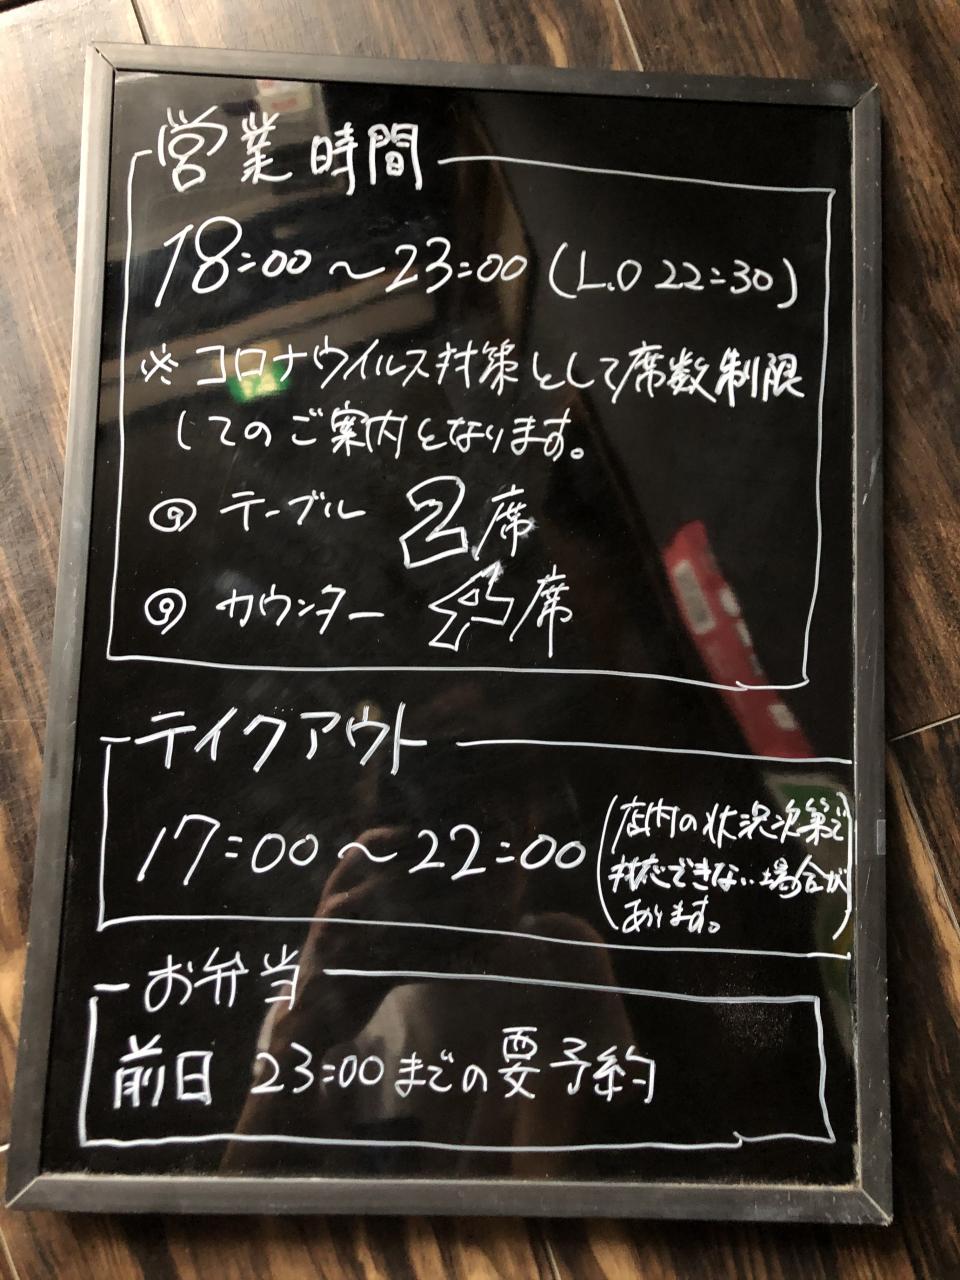 営業時間
18:00 〜 23:00 (L.O 22:30)
※ コロナウイルス対策として席数制限
してのご案内となります。
◎ テーブル 2席
◎ カウンター 4席
テイクアウト
17:00 〜 22:00
(店内の状況次第で
対応できない場合が
あります。)
お弁当
前日 23:00までの要予約